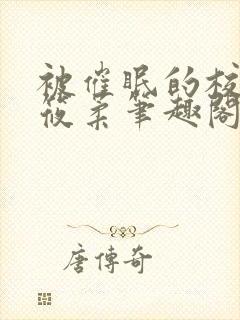 被催眠的校
筱柔笔趣阁
唐傳奇